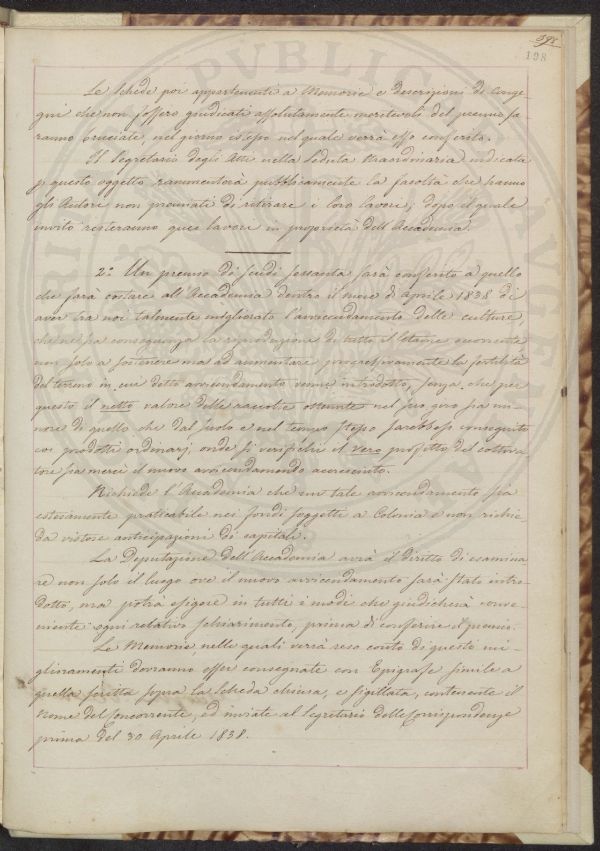 198
198
Le schede poi appartenenti a Memorie e descrizioni di conge-
gni che non fossero giudicati assolutamente meritevoli del premio sa
ranno bruciate, nel giorno istesso nel quale verrà esso conferito.
Il Segretario degli Atti nella Seduta straordinaria indicata
p questo oggetto rammenterà pubblicamente la facoltà che hanno
gli Autori non premiati di ritirare i loro lavori; dopo il quale
invito resteranno quei lavori in proprietà dell'Accademia.
2.° Un premio di scudi sessanta sarà conferito a quello
che farà costare all'Accademia dentro il mese di Aprile 1838 di
aver tra noi talmente migliorato l'avvicendamento delle culture,
che ne sia conseguenza la riproduzione di tutto il letame occorrente
non solo a sostenere ma ad aumentare progressivamente la fertilità
del terreno in cui detto avvicendamento venne introdotto, senza che per
questo il netto valore delle raccolte ottenute nel suo giro sia mi-
nore di quello che dal suolo e nel tempo stesso sarebbesi conseguito
coi prodotti ordinarj, onde si verifichi il vero profitto del coltiva
tore sia mercè il nuovo avvicendamento accresciuto.
Richiede l'Accademia che un tale avvicendamento sia
estesamente praticabile nei fondi soggetti a Colonia e non richie
da vistose anticipazioni di capitali.
La Deputazione dell'Accademia avrà il diritto di esamina
re non solo il luogo ove il nuovo avvicendamento sarà stato intro-
dotto, ma potrà esigere in tutti i modi che giudicherà conve-
niente ogni relativo schiarimento, prima di conferire il premio.
Le Memorie nelle quali verrà reso conto di questi mi-
glioramenti dovranno esser consegnate con Epigrafe simile a
quella scritta sopra la scheda chiusa, e sigillata, contenente il
nome del concorrente, ed inviate al Segretario delle Corrispondenze
prima del 30 Aprile 1838.